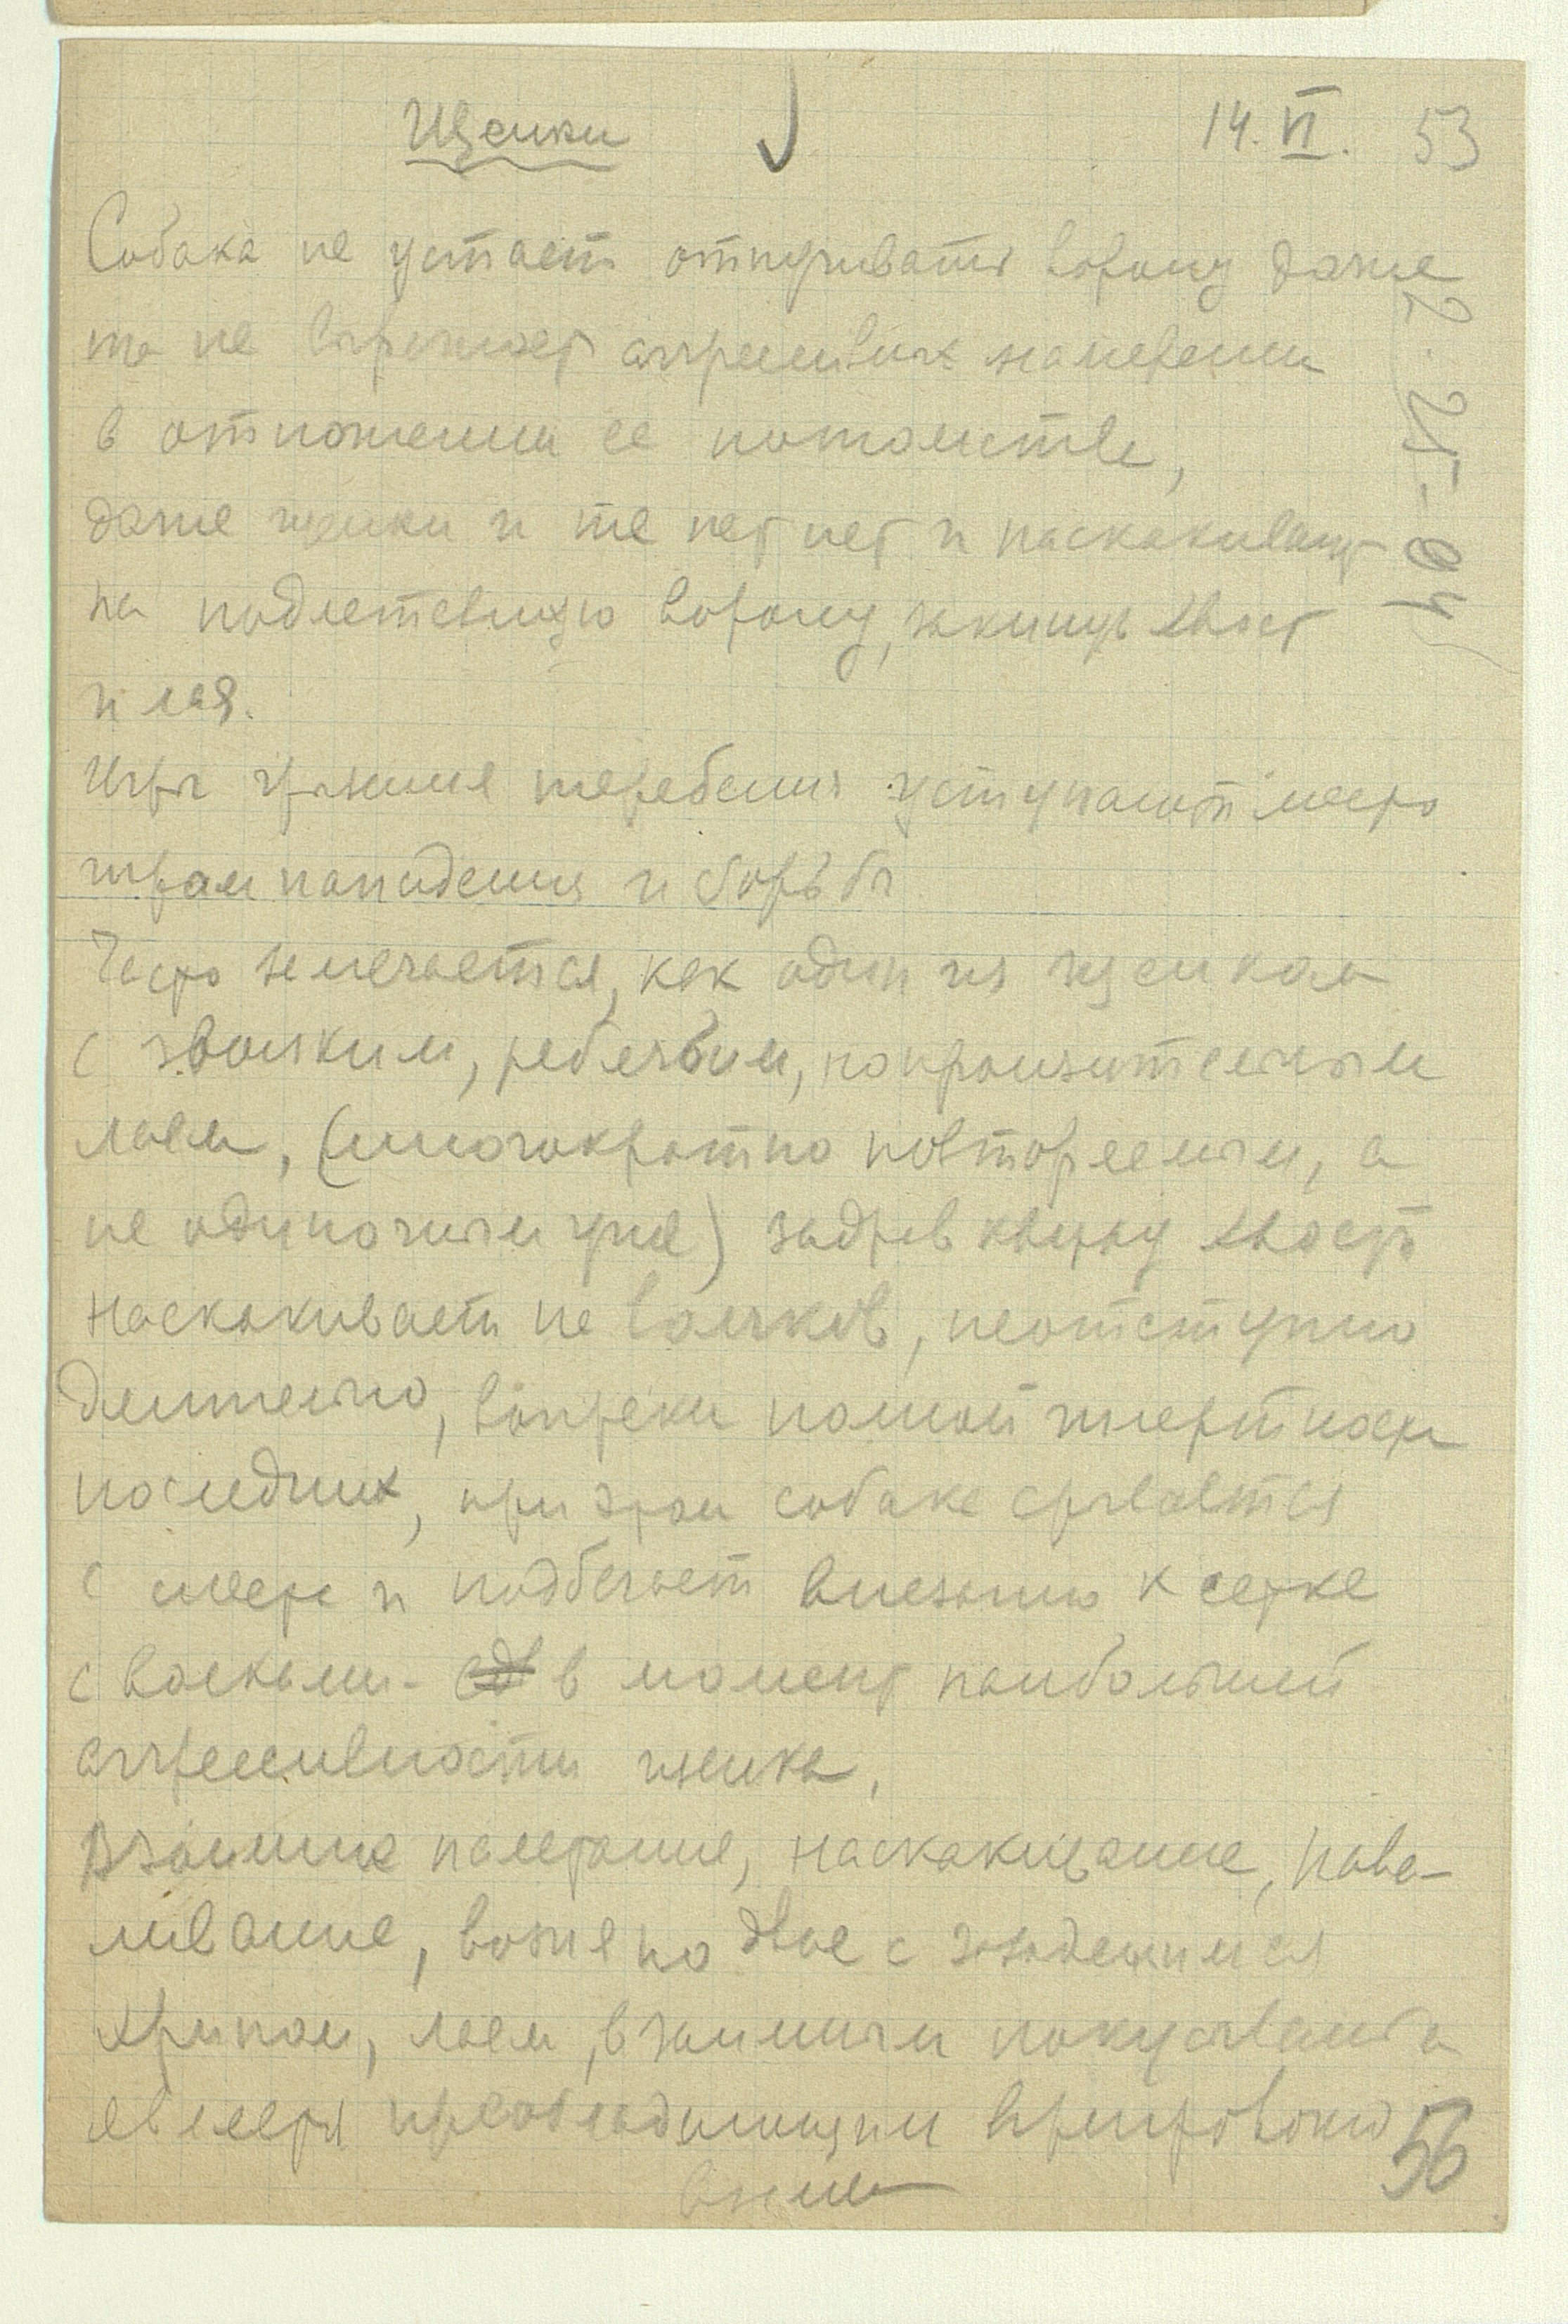 Щенки 14.VI. 53
Собака не устает отпугивать ворону даже
та не выражает агрессивных намерений
в отношении ее потомства,
даже щенки и те нет нет и наскакивают
на подлетевшую ворону, закинув хвост
и лая.
Игры грызения теребения уступают место
играм нападения и борьбы
Часто замечается, как один из щенков
с звонким, ребячьим, но пронзительным
лаем, (многократно повторяемым, а
не одиночным уже) задрав кверху хвост
наскакивает на волчков, неотступно
длительно, вопреки полной инертности
последних, при этом собака срывается
с места и подбегает внезапно к сетке
с волками - в момент наибольшей
агрессивности щенка.
Взаимные налетание, наскакивание, нава-
ливание, возня по двое с
хрипом, лаем, взаимными покусываниями
является преобладающим
56